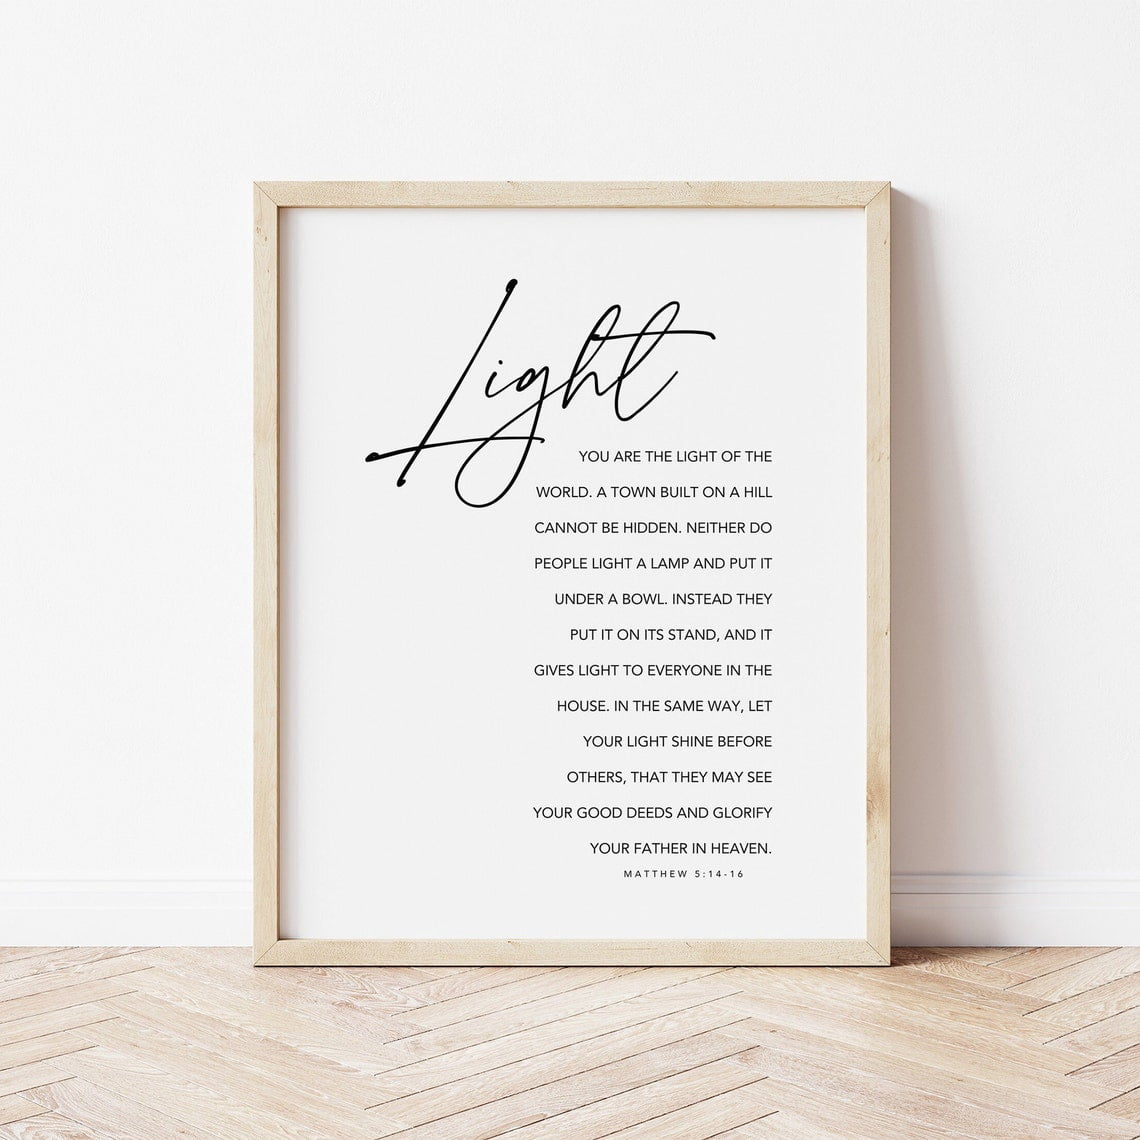 Light
YOU ARE THE LIGHT OF THE
WORLD. A TOWN BUILT ON A HILL
CANNOT BE HIDDEN. NEITHER DO
PEOPLE LIGHT A LAMP AND PUT IT
UNDER A BOWL. INSTEAD THEY
PUT IT ON ITS STAND, AND IT
GIVES LIGHT TO EVERYONE IN THE
HOUSE. IN THE SAME WAY, LET
YOUR LIGHT SHINE BEFORE
OTHERS, THAT THEY MAY SEE
YOUR GOOD DEEDS AND GLORIFY
YOUR FATHER IN HEAVEN.
MATTHEW 5:14-16